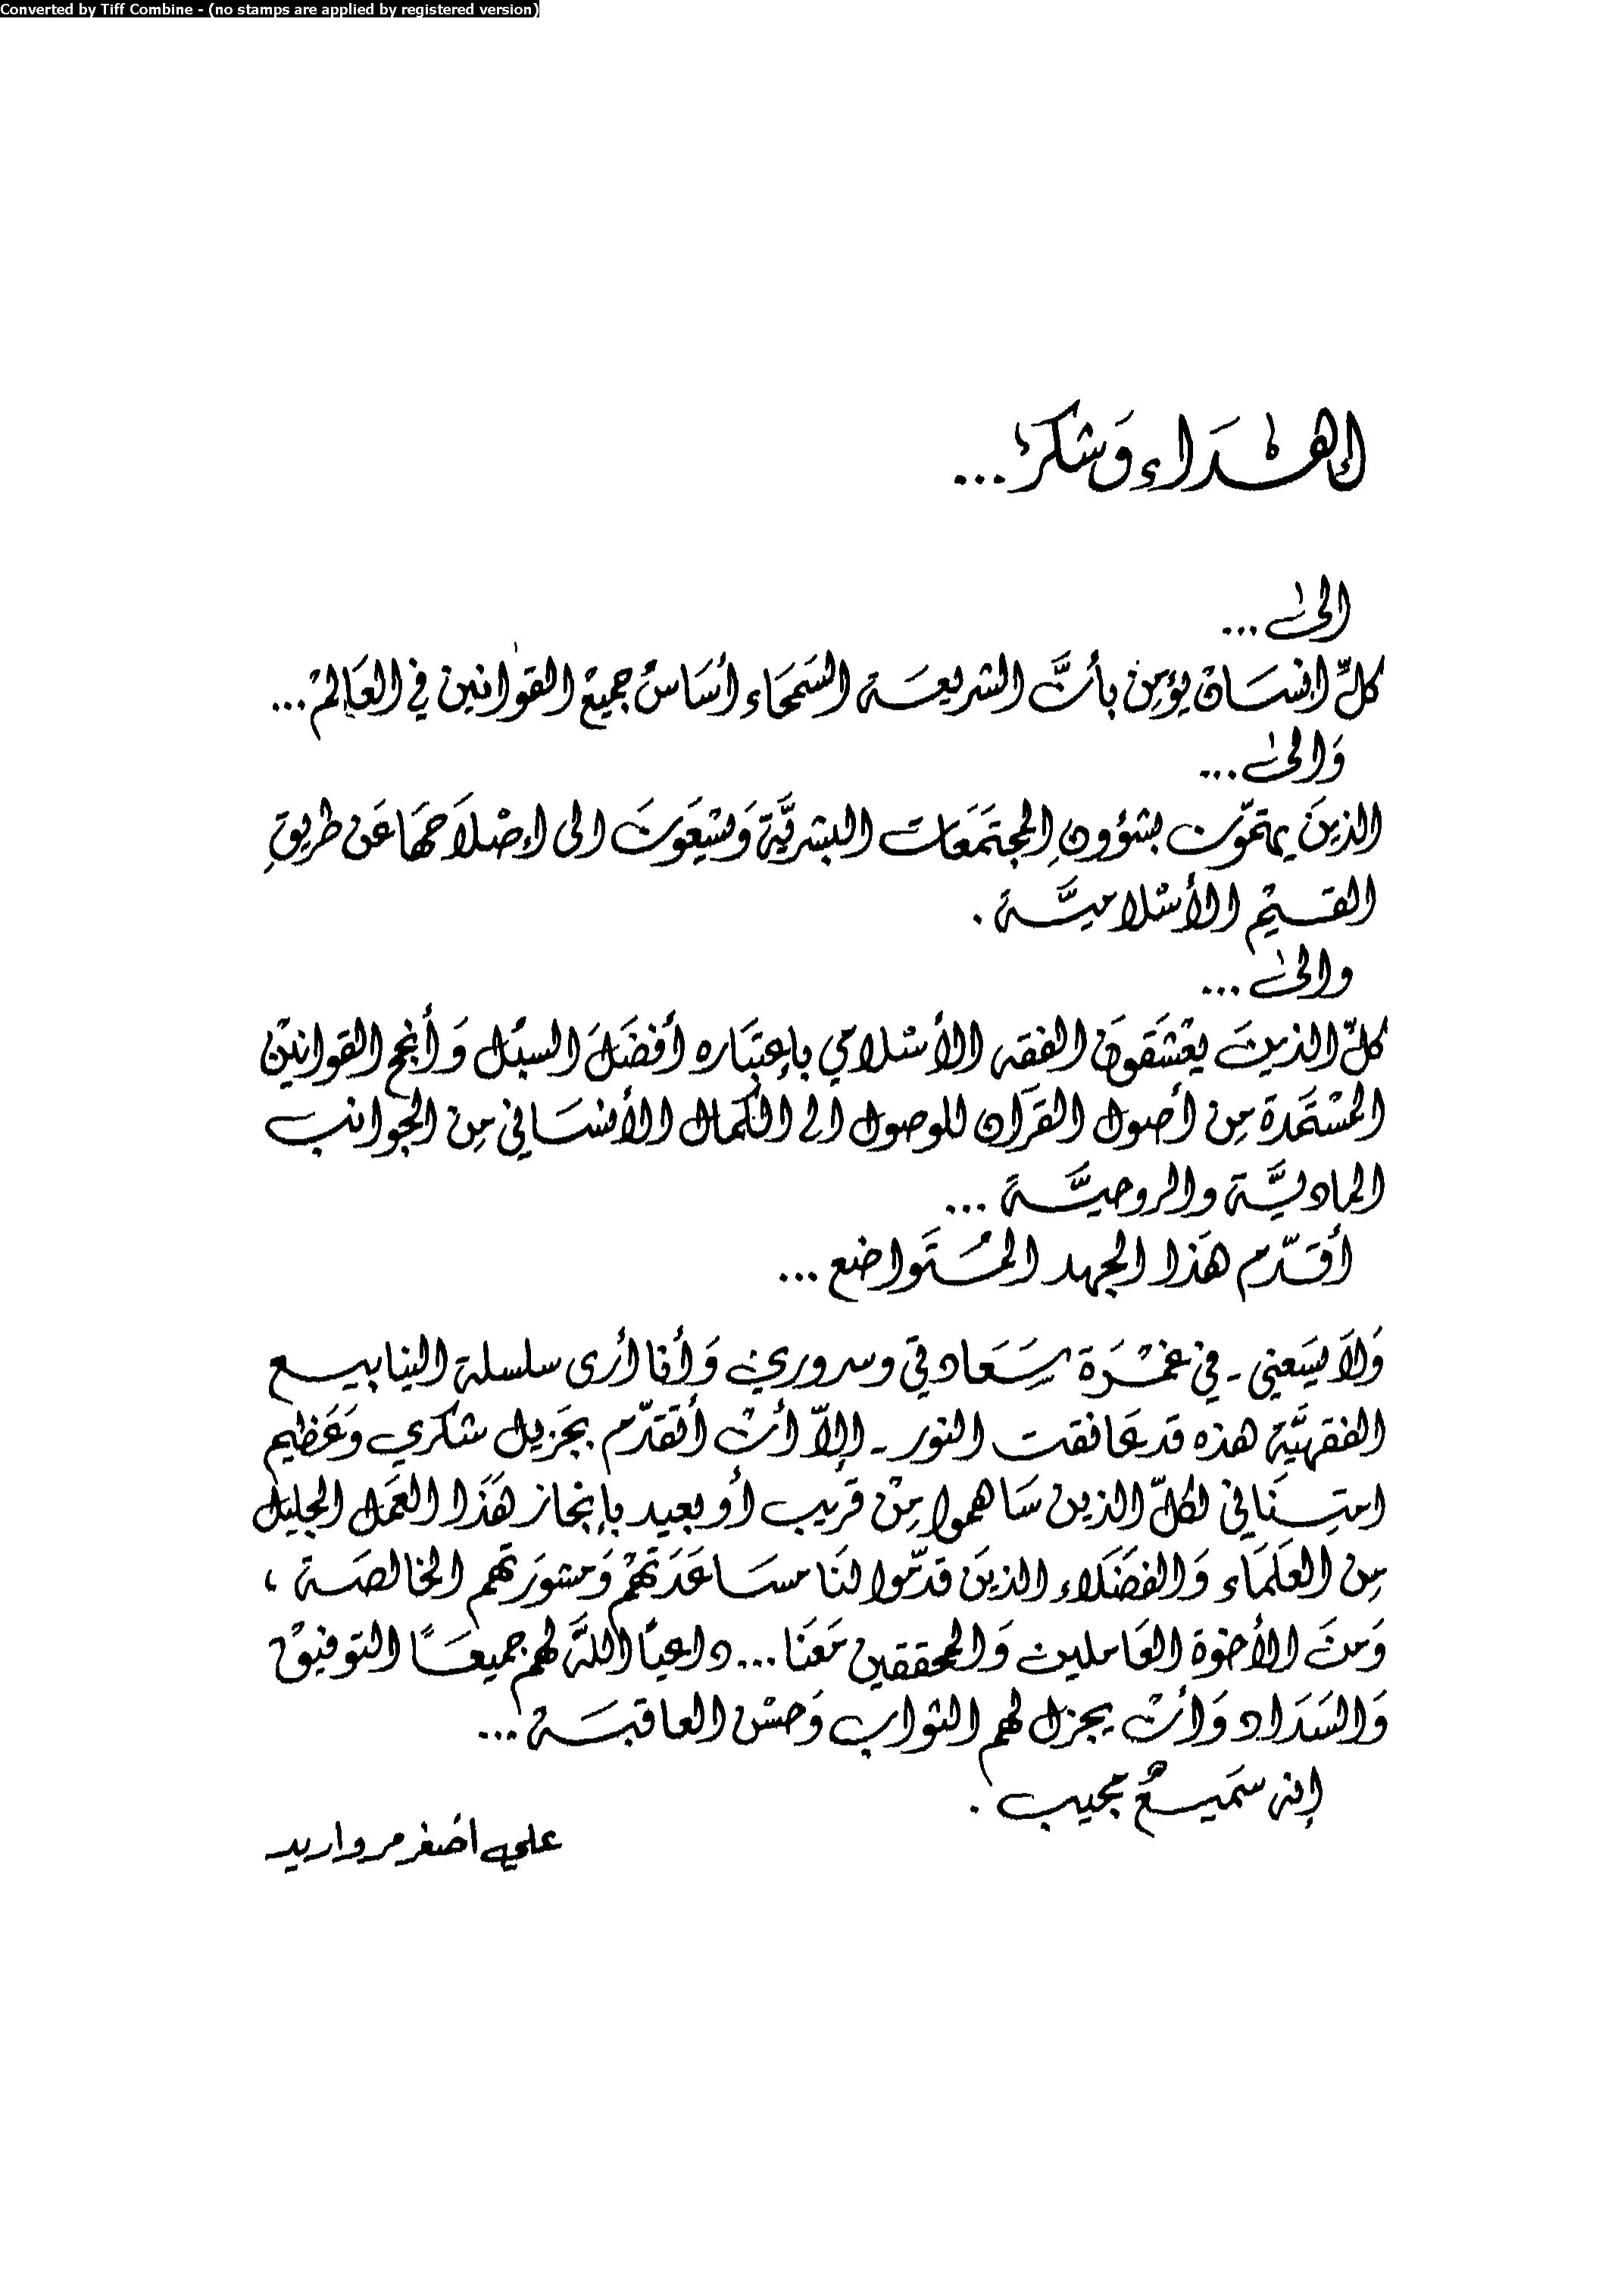 Converted by Tiff Combine - (no stamps are applied by registered version)
إهداء وشكر...
الى...
كلّ انسان يؤمن بأنَّ الشريعة السَمحَاء أسَاسُ جميع القوانين في العَالم...
وَالى...
الذينَ يهتمّون بشؤونِ المجتَمَعات البشريَّة وَيسْعَونَ الى إصْلاَحهَا عَن طريقِ
القيم الأسْلاميَّة .
والى...
كلّ الذينَ يعْشَقونَ الفقه الأسْلامي بإعتبَاره أفضَلَ السبُل وَأنجح القوانيْن
المسْتمَدة مِن أصول القرآن للوصول الى الكمال الأنسَاني مِن الجوانب
الماديَّة والروحيَّة ...
أقدّم هَذا الجهد المُتَواضع ...
وَلاَ يسَعني - في غمْرَة سَعَادتي وسروري وَأنا أرى سلسلة الينابيع
الفقهيَّة هذه قد عَانقت النور - إلاّ أنْ أتقدّم بجَزيل شكري وَعَظيم
امتِنَاني لكلّ الذين سَاهموا مِنْ قريب أو بعيد بإنجاز هَذا العمَل الجليل
مِن العلمَاء وَالفضَلاء الذينَ قدّموا لنَا مسَاعَدَتهُمْ وَمشوَرتهم الخالصَة ،
وَمنَ الأخوَة العَاملين وَالمحققين مَعَنا... داعيًا اللَّه لهم جميعًا التوفيقْ
وَالسَدَاد وَأنْ يجزل لهم الثواب وَحسْن العاقبَة ...
إنه سَميعٌ مجيب .
علي اصغر مرواريد